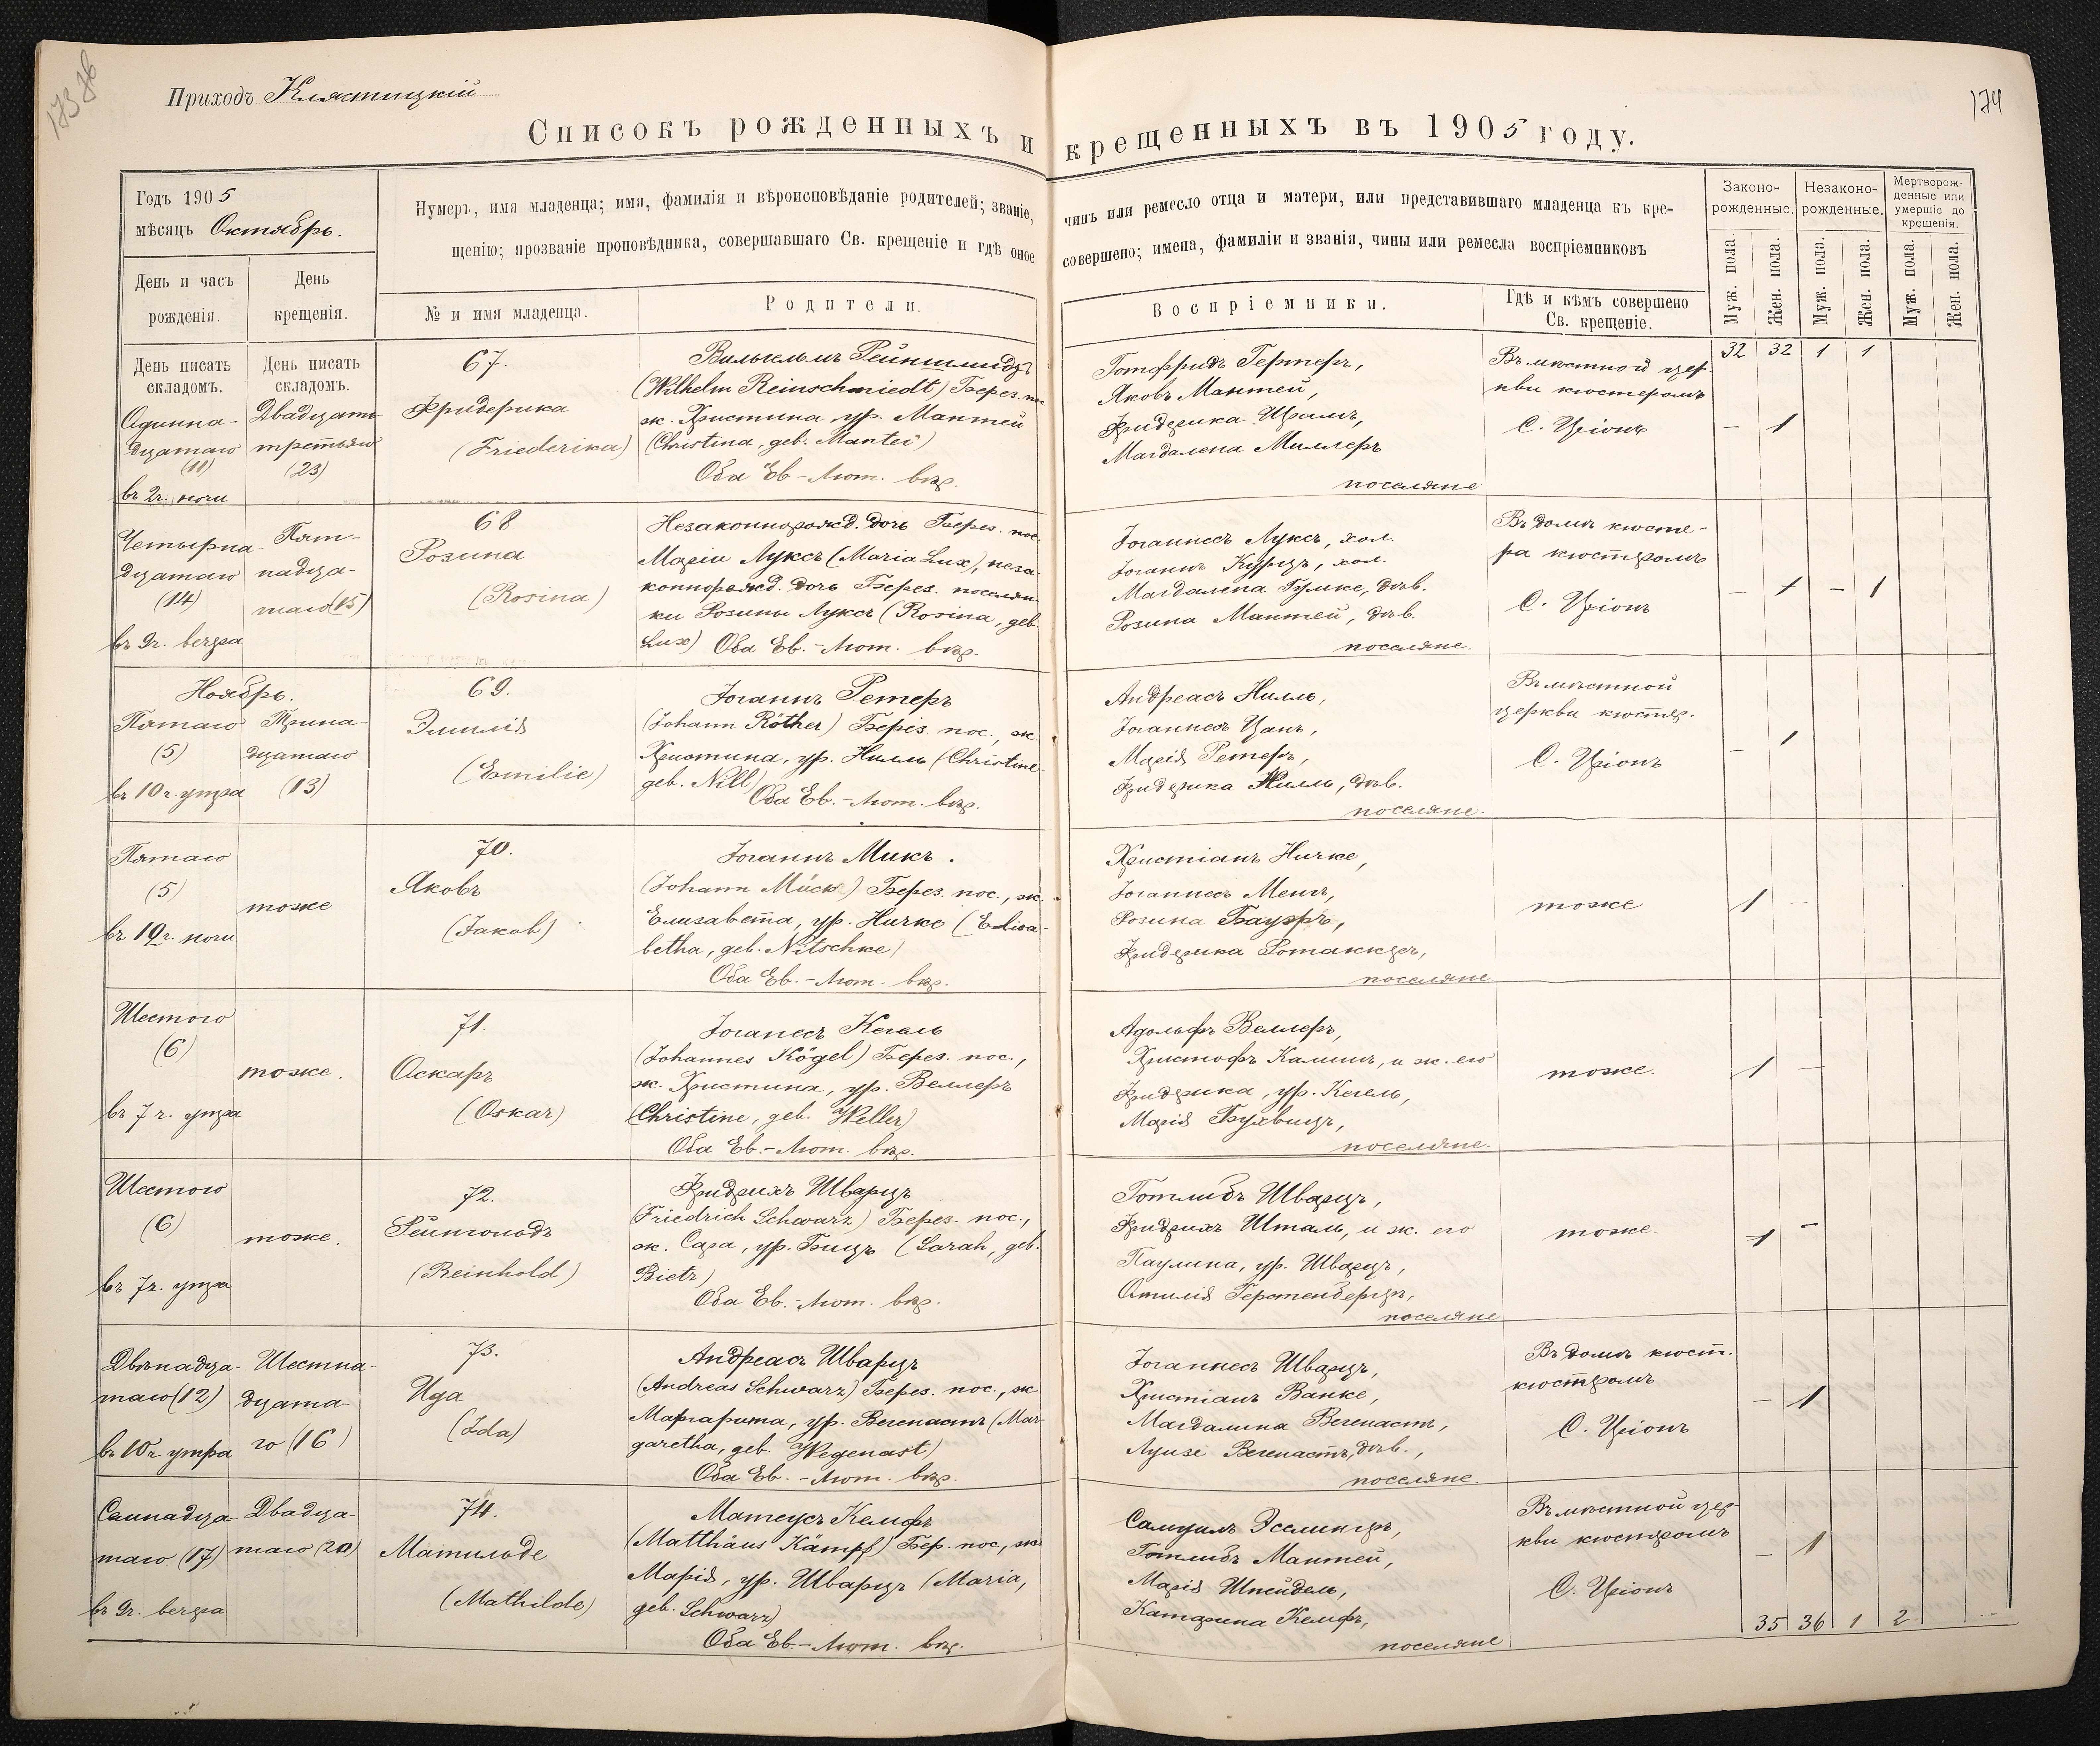 173 об
174
Приходъ Клястицкій
Списокъ рожденныхъ и крещенныхъ въ 1905 году.
Годъ 1905
мѣсяцъ Октябрь.
День и часъ
рожденія.
День
крещенія.
Нумеръ, имя младенца; имя, фамилія и вѣроисповѣданіе родителей; званіе, чинъ или ремесло отца и матери, или представившаго младенца къ кре-
щенію; прозваніе проповѣдника, совершавшаго Св. крещеніе и гдѣ оное совершено; имена, фамиліи и званія, чины или ремесла воспріемниковъ
№ и имя младенца.
Родители.
Воспріемники.
Гдѣ и кѣмъ совершено
Св. крещеніе.
Законо-
рожденные.
Незаконо-
рожденные.
Мертворож-
денные или
умершіе до
крещенія.
Муж. пола.
Жен. пола.
Муж. пола.
Жен. пола.
Муж. пола.
Жен. пола.
День писать
складомъ.
День писать
складомъ.
32 32 1 1
Одинна-
дцатаго
(11)
въ 2ч. ночи
Двадцать
третьяго
(23)
67.
Фридерика
(Friederika)
Вильгельмъ Рейншмидтъ
(Wilhelm Reinschmiedt) Берез. пос.
ж. Христина ур. Мантей
(Christina, geb. Mantei)
Оба Ев.-Лют. вѣр.
Готфридъ Гертеръ,
Яковъ Мантей,
Фридерика Цраль,
Магдалена Миллеръ
поселяне
Въ мѣстной цер-
кви кюстеромъ
С. Ціонъ
– 1
Четырна-
дцатаго
(14)
въ 9ч. вечера
Пят-
надца-
таго (15)
68.
Розина
(Rosina)
Незаконнорожд. дочь Берез. пос.
Маріи Луксъ (Maria Lux), неза-
коннорожд. дочь Берез. поселян-
ки Розины Луксъ (Rosina, geb.
Lux) Оба Ев.-Лют. вѣр.
Іоганнесъ Луксъ, хол.
Іоганнъ Курцъ, хол.
Магдалена Гумке, дѣв.
Розина Мантей, дѣв.
поселяне.
Въ домѣ кюсте-
ра кюстеромъ
С. Ціонъ
– 1 – 1
Ноябрь.
Пятаго
(5)
въ 10ч. утра
Трина-
дцатаго
(13)
69.
Эмилія
(Emilie)
Іоганнъ Ретеръ
(Johann Röther) Берез. пос., ж.
Христина, ур. Нилль (Christine
geb. Nill)
Оба Ев.-Лют. вѣр.
Андреасъ Нилль,
Іоганнесъ Цанъ,
Марія Ретеръ,
Фридерика Нилль, дѣв.
поселяне.
Въ мѣстной
церкви кюстер.
С. Ціонъ
– 1
Пятаго
(5)
въ 10ч. ночи
тоже
70.
Яковъ
(Jakob)
Іоганнъ Микъ.
(Johann Mück) Берез. пос., ж.
Елизавета, ур. Ничке (Elisa-
betha, geb. Nitschke)
Оба Ев.-Лют. вѣр.
Христіанъ Ничке,
Іоганнесъ Менгъ,
Розина Бауэръ,
Фридерика Ротаккеръ,
поселяне
тоже
1 –
Шестого
(6)
въ 7 ч. утра
тоже.
71.
Оскаръ
(Oskar)
Іоганесъ Кегель
(Johannes Kögel) Берез. пос.,
ж. Христина, ур. Веллеръ
(Christine, geb. Weller)
Оба Ев.-Лют. вѣр.
Адольфъ Веллеръ,
Христофъ Калишъ, и ж. его
Фридерика, ур. Кегель,
Марія Бухвицъ,
поселяне.
тоже.
1 –
Шестого
(6)
въ 7ч. утра
тоже.
72.
Рейнгольдъ
(Reinhold)
Фридрихъ Шварцъ
(Friedrich Schwarz) Берез. пос.,
ж. Сара, ур. Бицъ (Sarah, geb.
Bietz)
Оба Ев.-Лют. вѣр.
Готлибъ Шварцъ,
Фридрихъ Шталь, и ж. его
Паулина, ур. Шварцъ,
Отилія Герстенбергеръ,
поселяне
тоже.
1 –
Двѣнадца-
таго (12)
въ 10ч. утра
Шестна-
дцата-
го (16)
73.
Ида
(Ida)
Андреасъ Шварцъ
(Andreas Schwarz) Берез. пос., ж.
Маргарита, ур. Вегенастъ (Mar-
garetha, geb. Wegenast)
Оба Ев.-Лют. вѣр.
Іоганнесъ Шварцъ,
Христіанъ Ванке,
Магдалина Вегенастъ,
Луизе Вегенастъ, дѣв.,
поселяне.
Въ домѣ кюст.
кюстеромъ
С. Ціонъ
– 1
Семнадца-
таго (17)
въ 9ч. вечера
Двадца-
таго (20)
74.
Матильде
(Mathilde)
Матеусъ Кемфъ
(Matthäus Kämpf) Бер. пос., ж.
Марія, ур. Шварцъ (Maria,
geb. Schwarz)
Оба Ев.-Лют. вѣр.
Самуилъ Эслингеръ,
Готлибъ Мантей,
Марія Шнейдель,
Катарина Кемфъ,
поселяне
Въ мѣстной цер-
кви кюстеромъ
С. Ціонъ
– 1
35 36 1 2